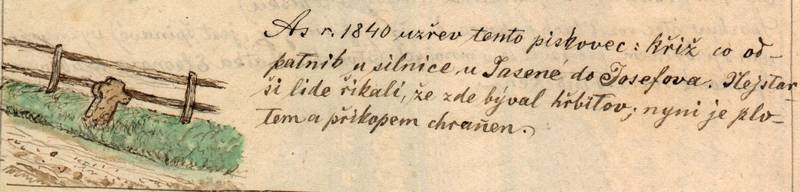 As r. 1840 uzřev tento piskovec: křiž co od-
patnib u silnice u Jasené do Josefova. Nejstar-
ši lide řikali, že zde býval hřbitov; nyni je plo-
tem a přikopem chraňen.